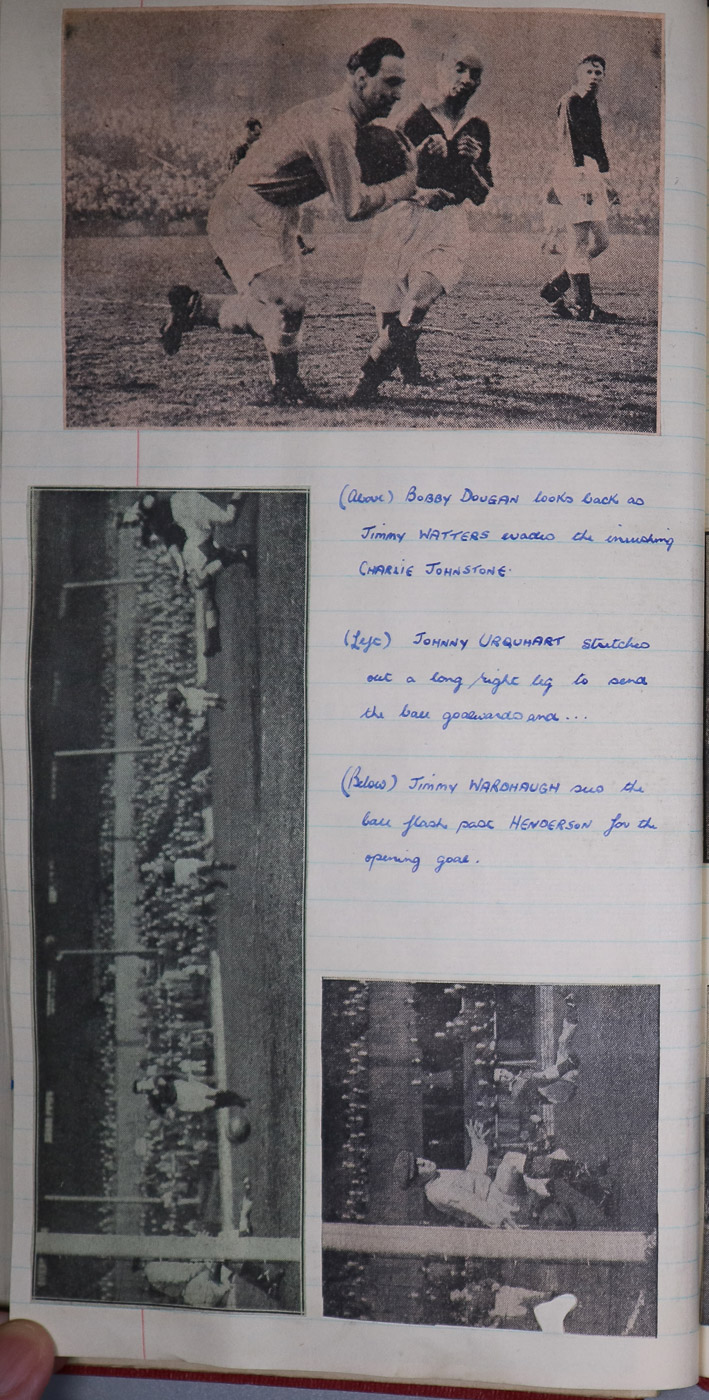 (Above) BOBBY DOUGAN looks back as
Jimmy WATTERS evades the inrushing
CHARLIE JOHNSTONE.
(Left) JOHNNY URQUHART stretches
out a long right leg to send
the ball goalwards and ...
(Below) Jimmy WARDHAUGH sees the
ball flash past HENDERSON for the
opening goal.